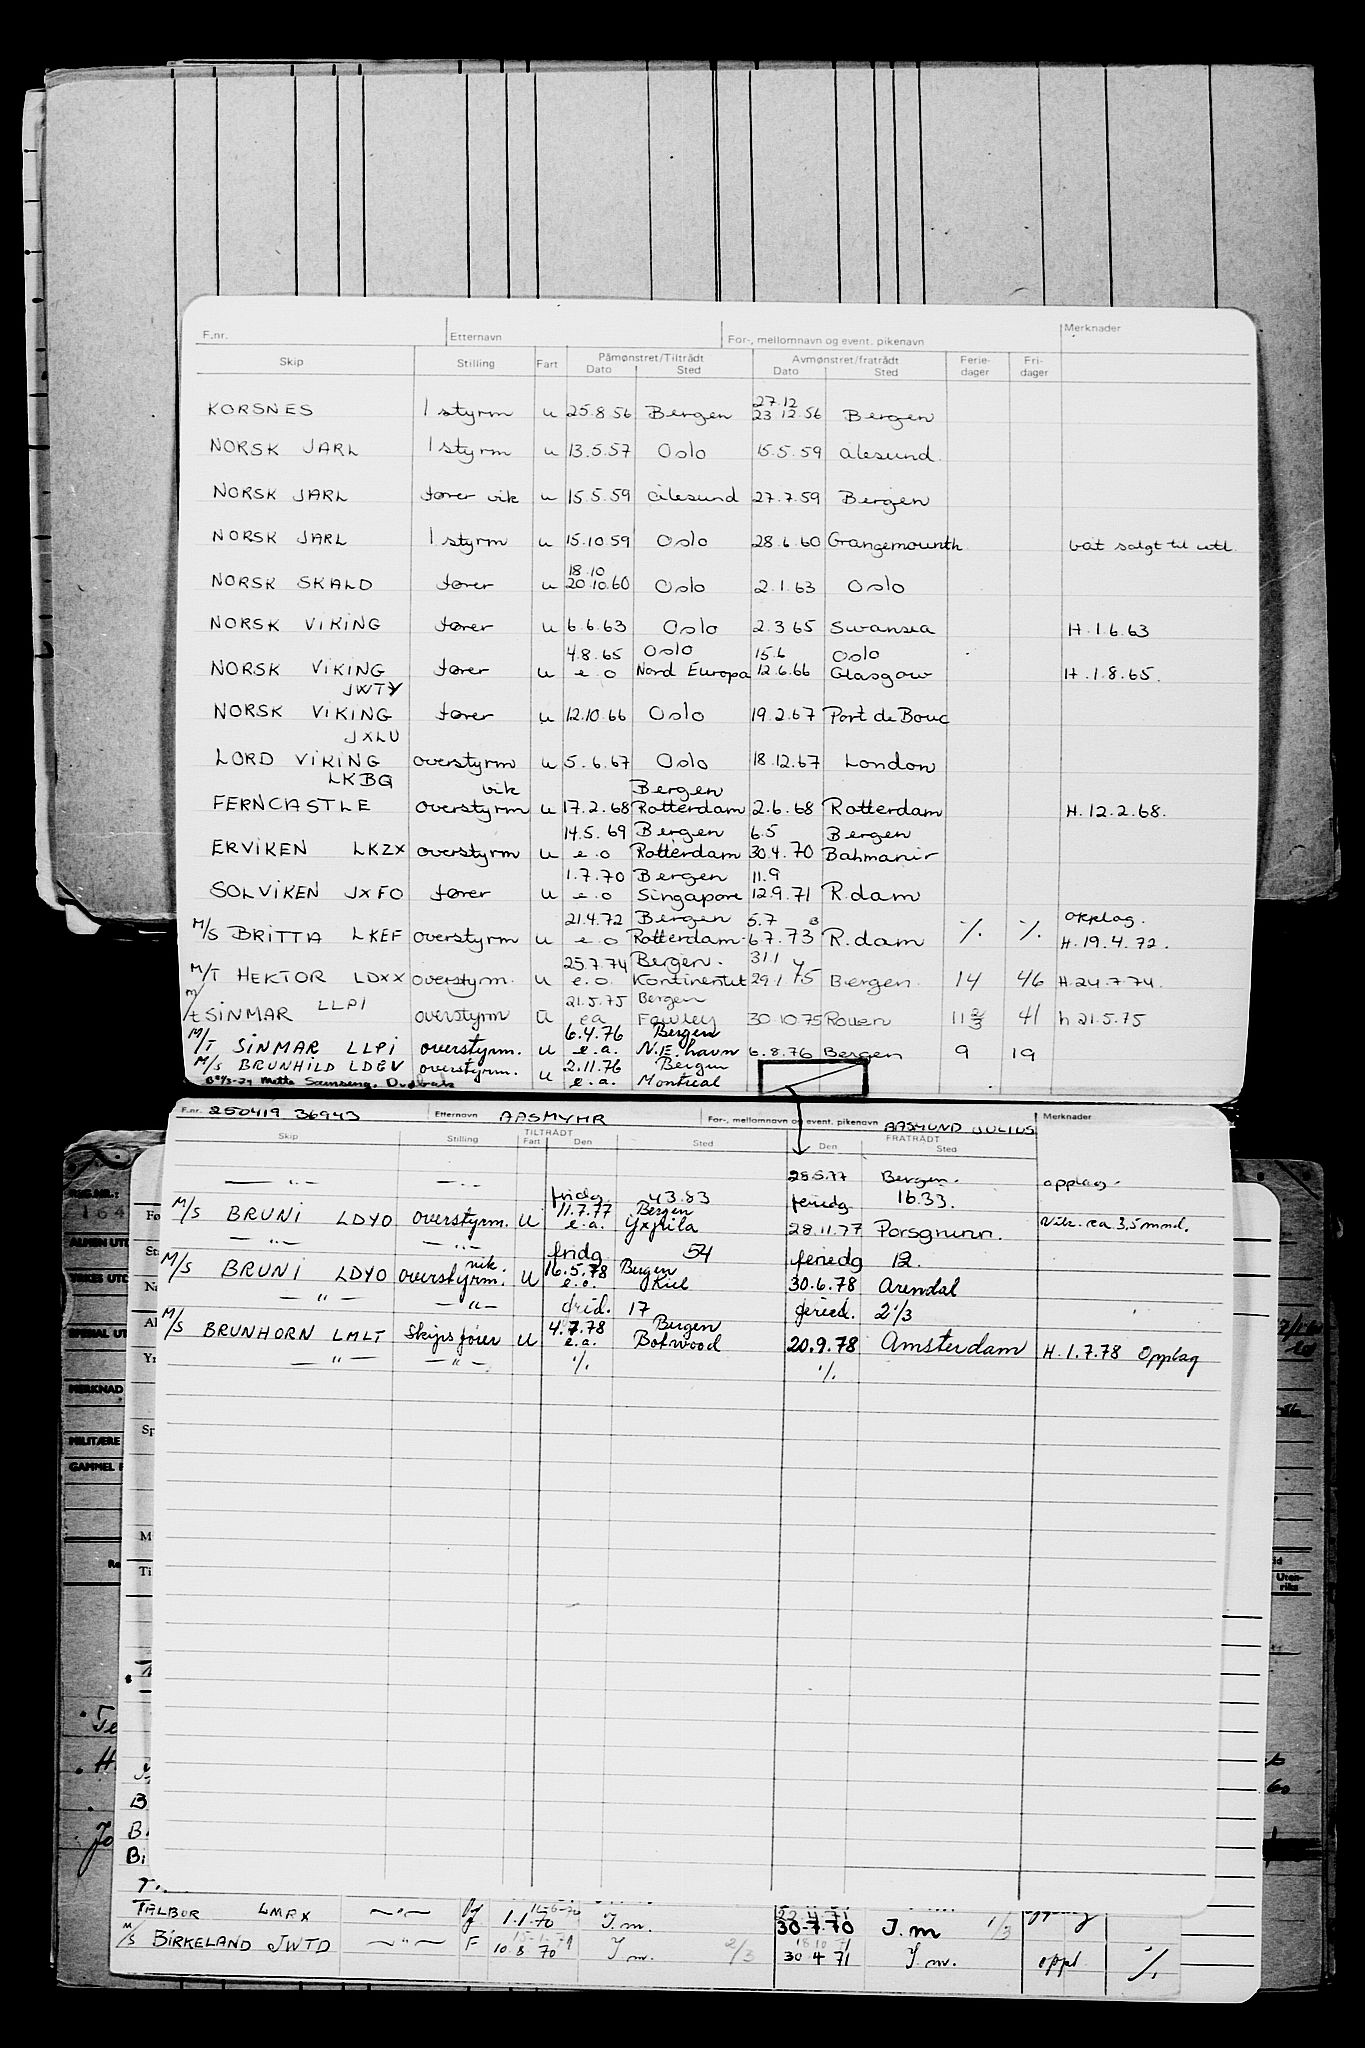 F.nr. Etternavn For-, mellomnavn og event. pikenavn Merknader
Skip Stilling Fart Påmønstret/Tiltrådt Avmønstret/fratrådt Ferie-dager Fri-dager
Dato Sted Dato Sted
27.12
KORSNES 1 styrm u 25.8.56 Bergen 23.12.56 Bergen
NORSK JARL 1 styrm u 13.5.57 Oslo 15.5.59 Ålesund
NORSK JARL fører vik u 15.5.59 Ålesund 27.7.59 Bergen
NORSK JARL 1 styrm u 15.10.59 Oslo 28.6.60 Grangemounth båt solgt til utl.
18.10
NORSK SKALD fører u 20.10.60 Oslo 2.1.63 Oslo
NORSK VIKING fører u 6.6.63 Oslo 2.3.65 Swansea H. 1.6.63
4.8.65 Oslo 15.6 Oslo
NORSK VIKING fører u e.o Nord Europa 12.6.66 Glasgow H. 1.8.65.
JWTY
NORSK VIKING fører u 12.10.66 Oslo 19.2.67 Port de Bouc
JXLU
LORD VIKING overstyrm u 5.6.67 Oslo 18.12.67 London
LKBQ vik Bergen
FERNCASTLE overstyrm u 17.2.68 Rotterdam 2.6.68 Rotterdam H. 12.2.68.
14.5.69 Bergen 6.5 Bergen
ERVIKEN LKZX overstyrm u e.o Rotterdam 30.4.70 Bahmanir
1.7.70 Bergen 11.9
SOLVIKEN JXFO fører u e.o Singapore 12.9.71 R.dam
21.4.72 Bergen 5.7 opplag.
M/S BRITTA LKEF overstyrm u e.o Rotterdam 6.7.73 R.dam ./. ./. H. 19.4.72.
25.7.74 Bergen. 31.1
M/T HEKTOR LDXX overstyrm. u e.o. Kontinentet 29.1.75 Bergen. 14 46 H 24.7.74.
21.5.75 Bergen
M/t SINMAR LLPI overstyrm u ea Fawley 30.10.75 Rouen 11 2/3 41 h 21.5.75
6.4.76 Bergen
M/T SINMAR LLPI overstyrm. u e.a. N.E. havn 6.8.76 Bergen 9 19
2.11.76 Bergen
M/S BRUNHILD LDEV overstyrm. u e.a. Montreal
F.nr. 250419 36943 Etternavn AASMYHR For-, mellomnavn og event. pikenavn AASMUND JULIUS Merknader
Skip Stilling TILTRÅDT FRATRÅDT
Fart Den Sted Den Sted
— " — — " — 28.5.77 Bergen. opplag.
fridg 43.83 feriedg 16.33.
11.7.77 Bergen
M/S BRUNI LDYO overstyrm. u e.a. Yxpila 28.11.77 Porsgrunn. Vik. ca 3,5 mnd.
— " — — " — fridg 54 feriedg 12.
vik. 16.5.78 Bergen
M/S BRUNI LDYO overstyrm. u e.o. Kiel 30.6.78 Arendal
— " — — " — frid. 17 feried. 2 1/3
4.7.78 Bergen
M/S BRUNHORN LMLT Skipsfører u e.a. Botwood 20.9.78 Amsterdam H. 1.7.78 Opplag
— " — — " — ./. ./.
REG.NR.:
164
MERKNAD
MILITÆRE
Uten-riks
TALBOR LMPX — " — 1.1.70 I.m. 30.7.70 I.m 1/3
M/S BIRKELAND JWTD — " — F 10 8 70 I.m. 2/3 30 4 71 I.m. oppl ./.